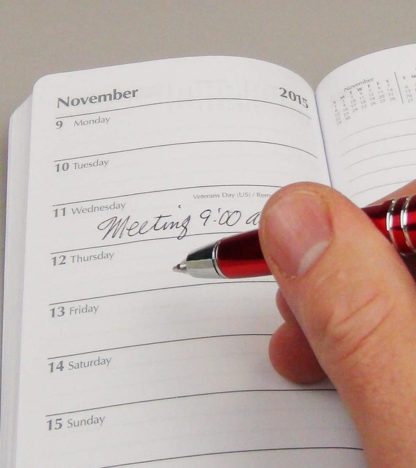 November 2015
9 Monday
10 Tuesday
11 Wednesday
Veterans Day (US)
Meeting 9:00 a
12 Thursday
13 Friday
14 Saturday
15 Sunday
November